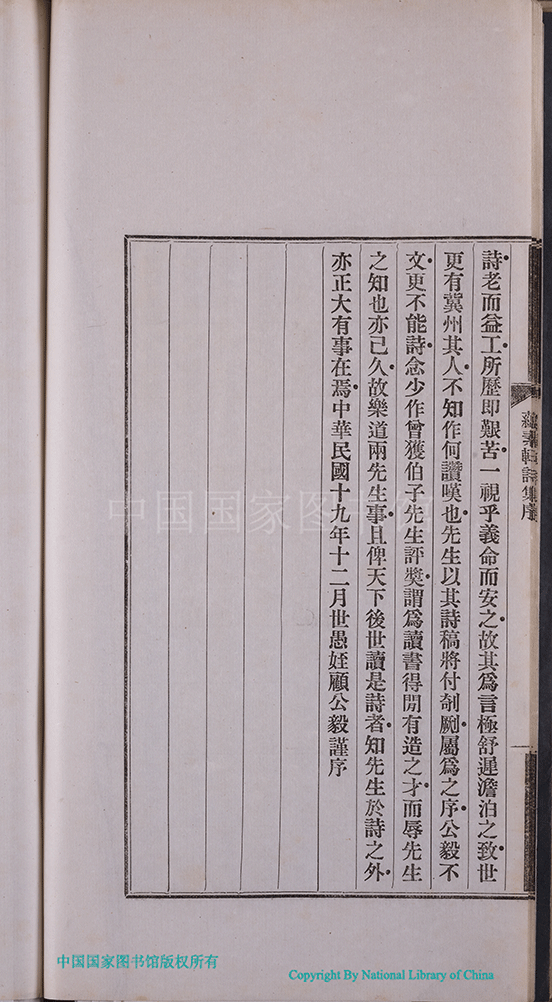 詩老而益工所歷卽艱苦一視乎義命而安之故其爲言極舒遲澹泊之致世
更有冀州其人不知作何讚嘆也先生以其詩稿將付剞劂屬爲之序公毅不
文更不能詩念少作曾獲伯子先生評奬謂爲讀書得閒有造之才而辱先生
之知也亦已久故樂道兩先生事且俾天下後世讀是詩者知先生於詩之外
亦正大有事在焉中華民國十九年十二月世愚姪顧公毅謹序
素軒詩集序
一
中国国家图书馆
中国国家图书馆版权所有
Copyright By National Library of China